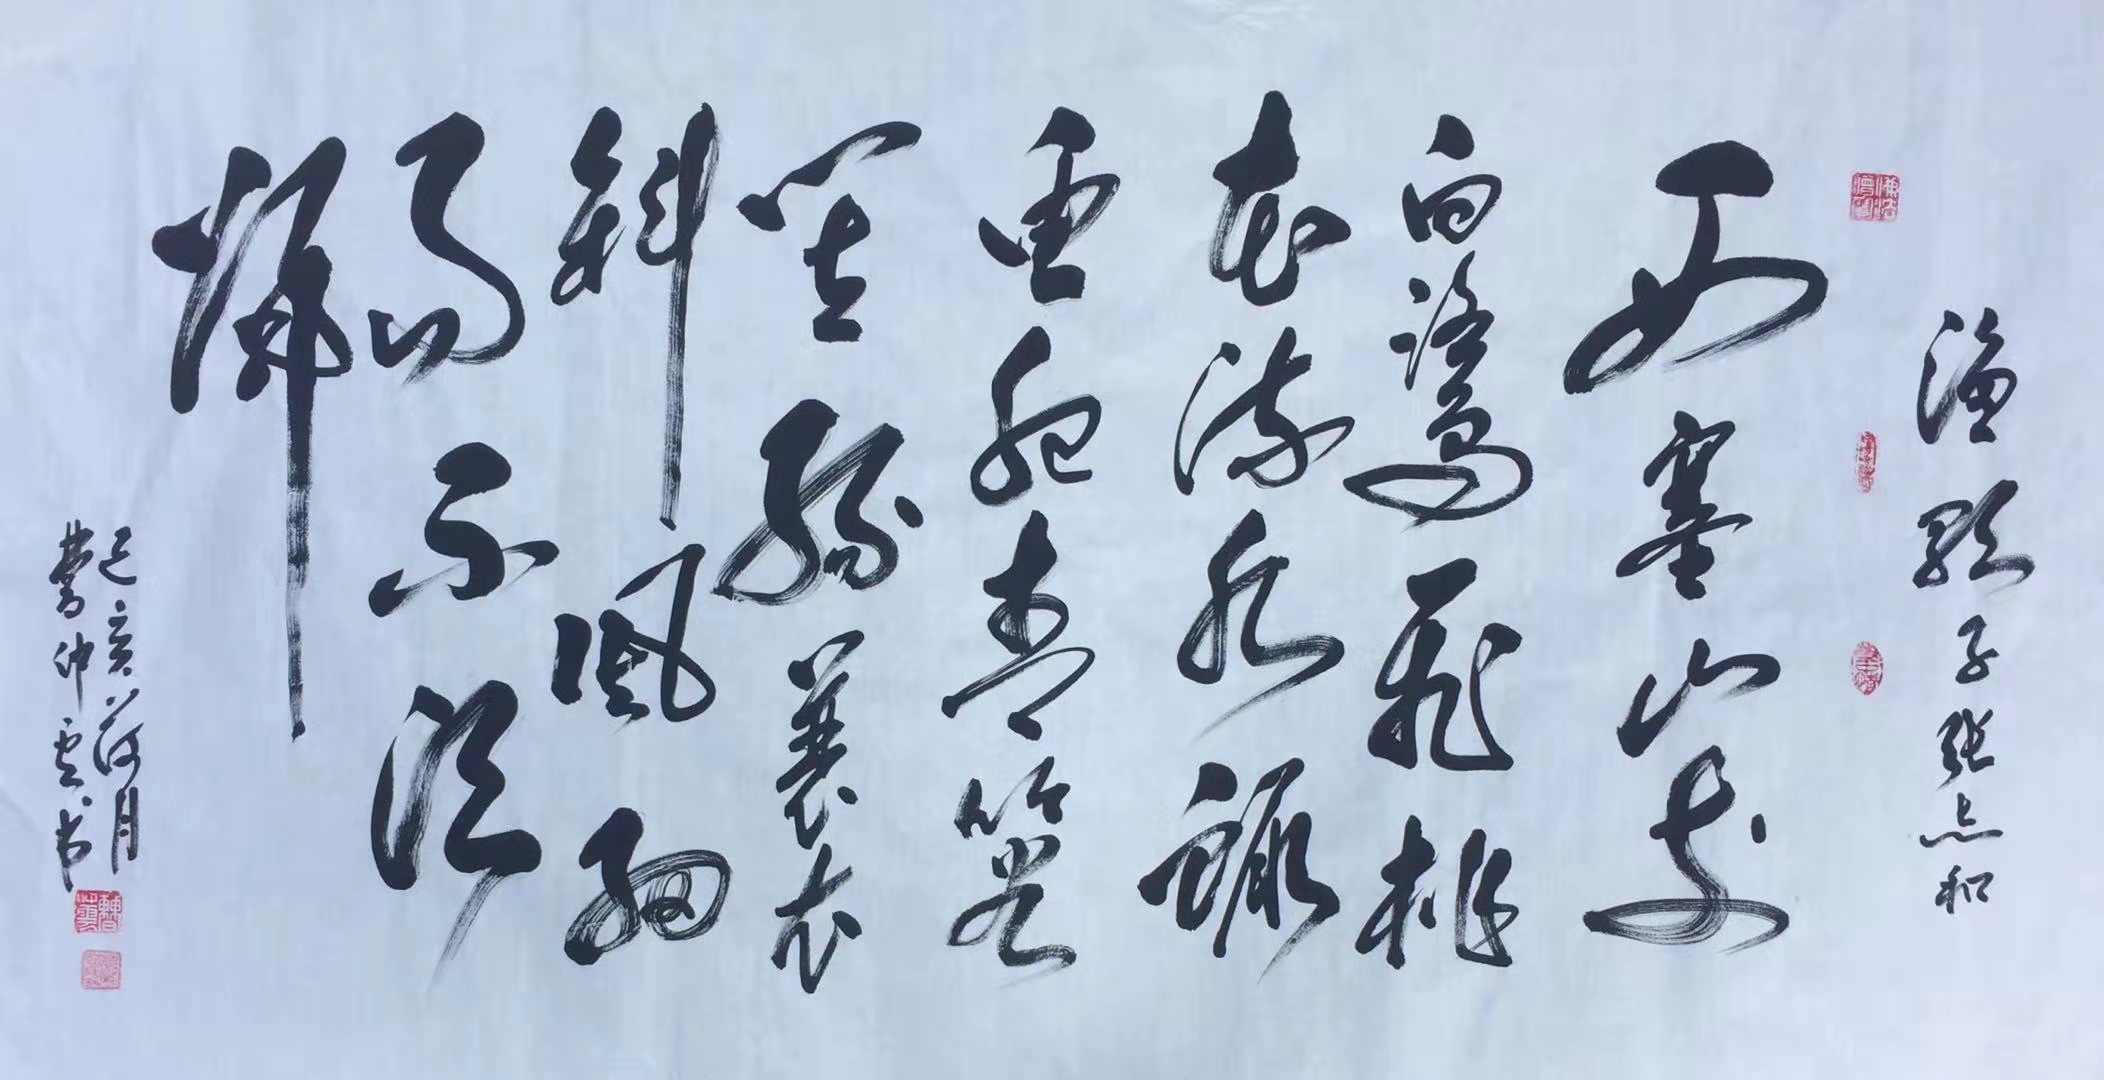 渔歌子张志和
西塞山前
白鹭飞桃
花流水鳜
鱼肥青箬
笠绿蓑衣
斜风细
雨不须
归
己亥荷月
曹仲云书